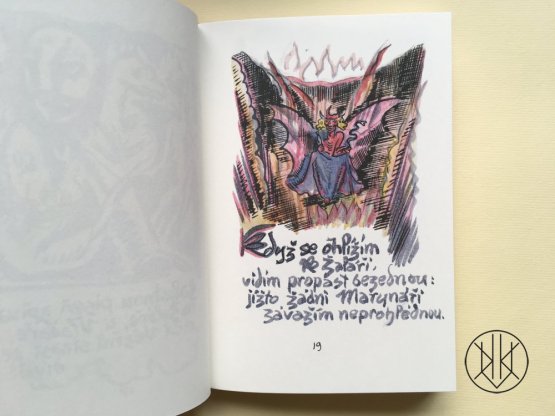 Když se ohlížím
ke žaláři,
vidím propast bezednou:
jížto žádní Marynáři
závažím neprohlédnou.
19